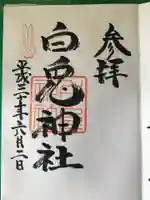 参拝
白兎神社
平成二十年六月二日